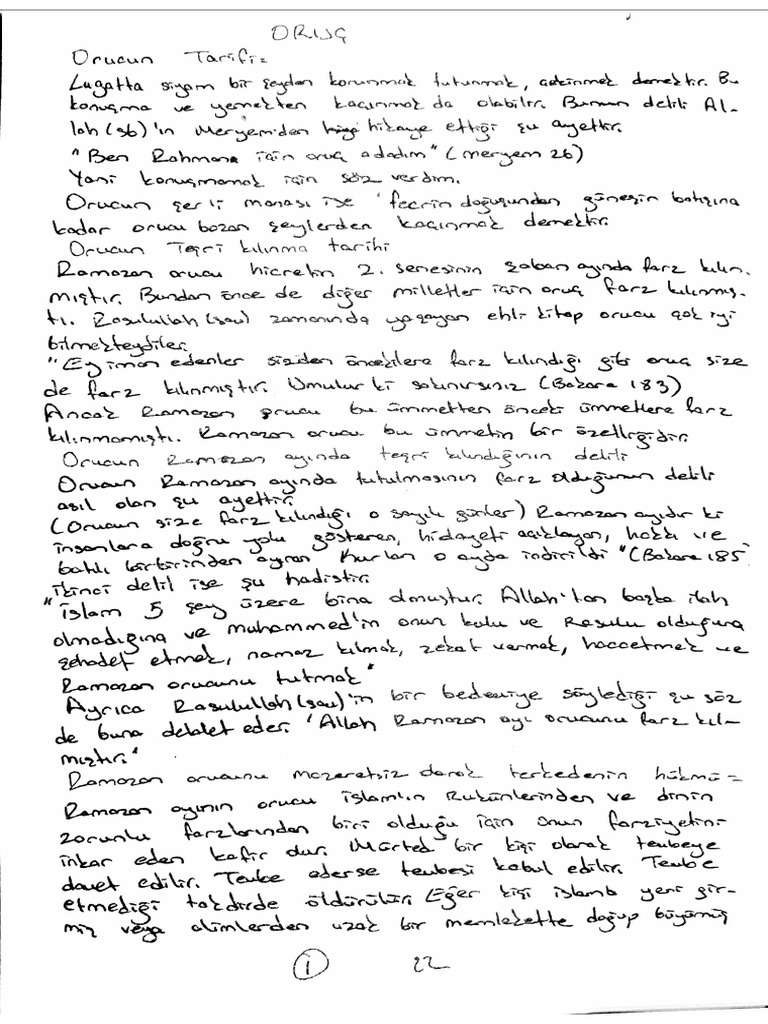 ORUÇ
Orucun Tarifi=
Lugatta siyam bir şeyden korunmak tutunmak, çekinmek demektir. Bu
konuşma ve yemekten kaçınmak da olabilir. Bunun delili Al-
lah (sb)'ın Meryemden hikaye ettiği şu ayettir.
"Ben Rahmana için oruç adadım" (meryem 26)
Yani konuşmamak için söz verdim.
Orucun şer'i manası ise 'fecrin doğuşundan güneşin batışına
kadar orucu bozan şeylerden kaçınmak demektir.
Orucun Teşri kılınma tarihi
Ramazan orucu hicretin 2. senesinin şaban ayında farz kılın.
mıştır. Bundan önce de diğer milletler için oruç farz kılınmış-
tı. Rasulullah (sav) zamanında yaşayan ehli kitap orucu çok iyi
bilmekteydiler.
"Ey iman edenler sizden öncekilere farz kılındığı gibi oruç size
de farz kılınmıştır. Umulur ki sakınırsınız (Bakara 183)
Ancak Ramazan orucu bu ümmetten önceki ümmetlere farz
kılınmamıştı. Ramazan orucu bu ümmetin bir özelliğidir.
Orucun Ramazan ayında teşri kılındığının delili
Orucun Ramazan ayında tutulmasının farz olduğunun delili
asıl olan şu ayettir.
(Orucun size farz kılındığı o sayılı günler) Ramazan ayıdır ki
insanlara doğru yolu gösteren, hidayeti açıklayan, hakkı ve
batılı birbirinden ayıran Kur'an o ayda indirildi "(Bakara 185
ikinci delil ise şu hadistir.
"İslam 5 şey üzere bina olmuştur. Allah'tan başka ilah
olmadığına ve muhammed'in onun kulu ve Rasulu olduğuna
şehadet etmek, namaz kılmak, zekat vermek, haccetmek ve
Ramazan orucunu tutmak"
Ayrıca Rasulullah (sav)'in bir bedeviye söylediği şu söz
de buna delalet eder. 'Allah Ramazan ayı orucunu farz kıl-
mıştır."
Ramazan orucunu mazeretsiz olarak terkedenin hükmü=
Ramazan ayının orucu islam'ın Rukünlerinden ve dinin
zorunlu farzlarından biri olduğu için onun farziyetini-
inkar eden kafir dur. Mürted bir kişi olarak teubeye
davet edilir. Teube ederse teubesi kabul edilir. Teube
etmediği takdirde öldürülür. Eğer kişi islamı yeni gir-
miş veya alimlerden uzak bir memlekette doğup büyümüş
1 22